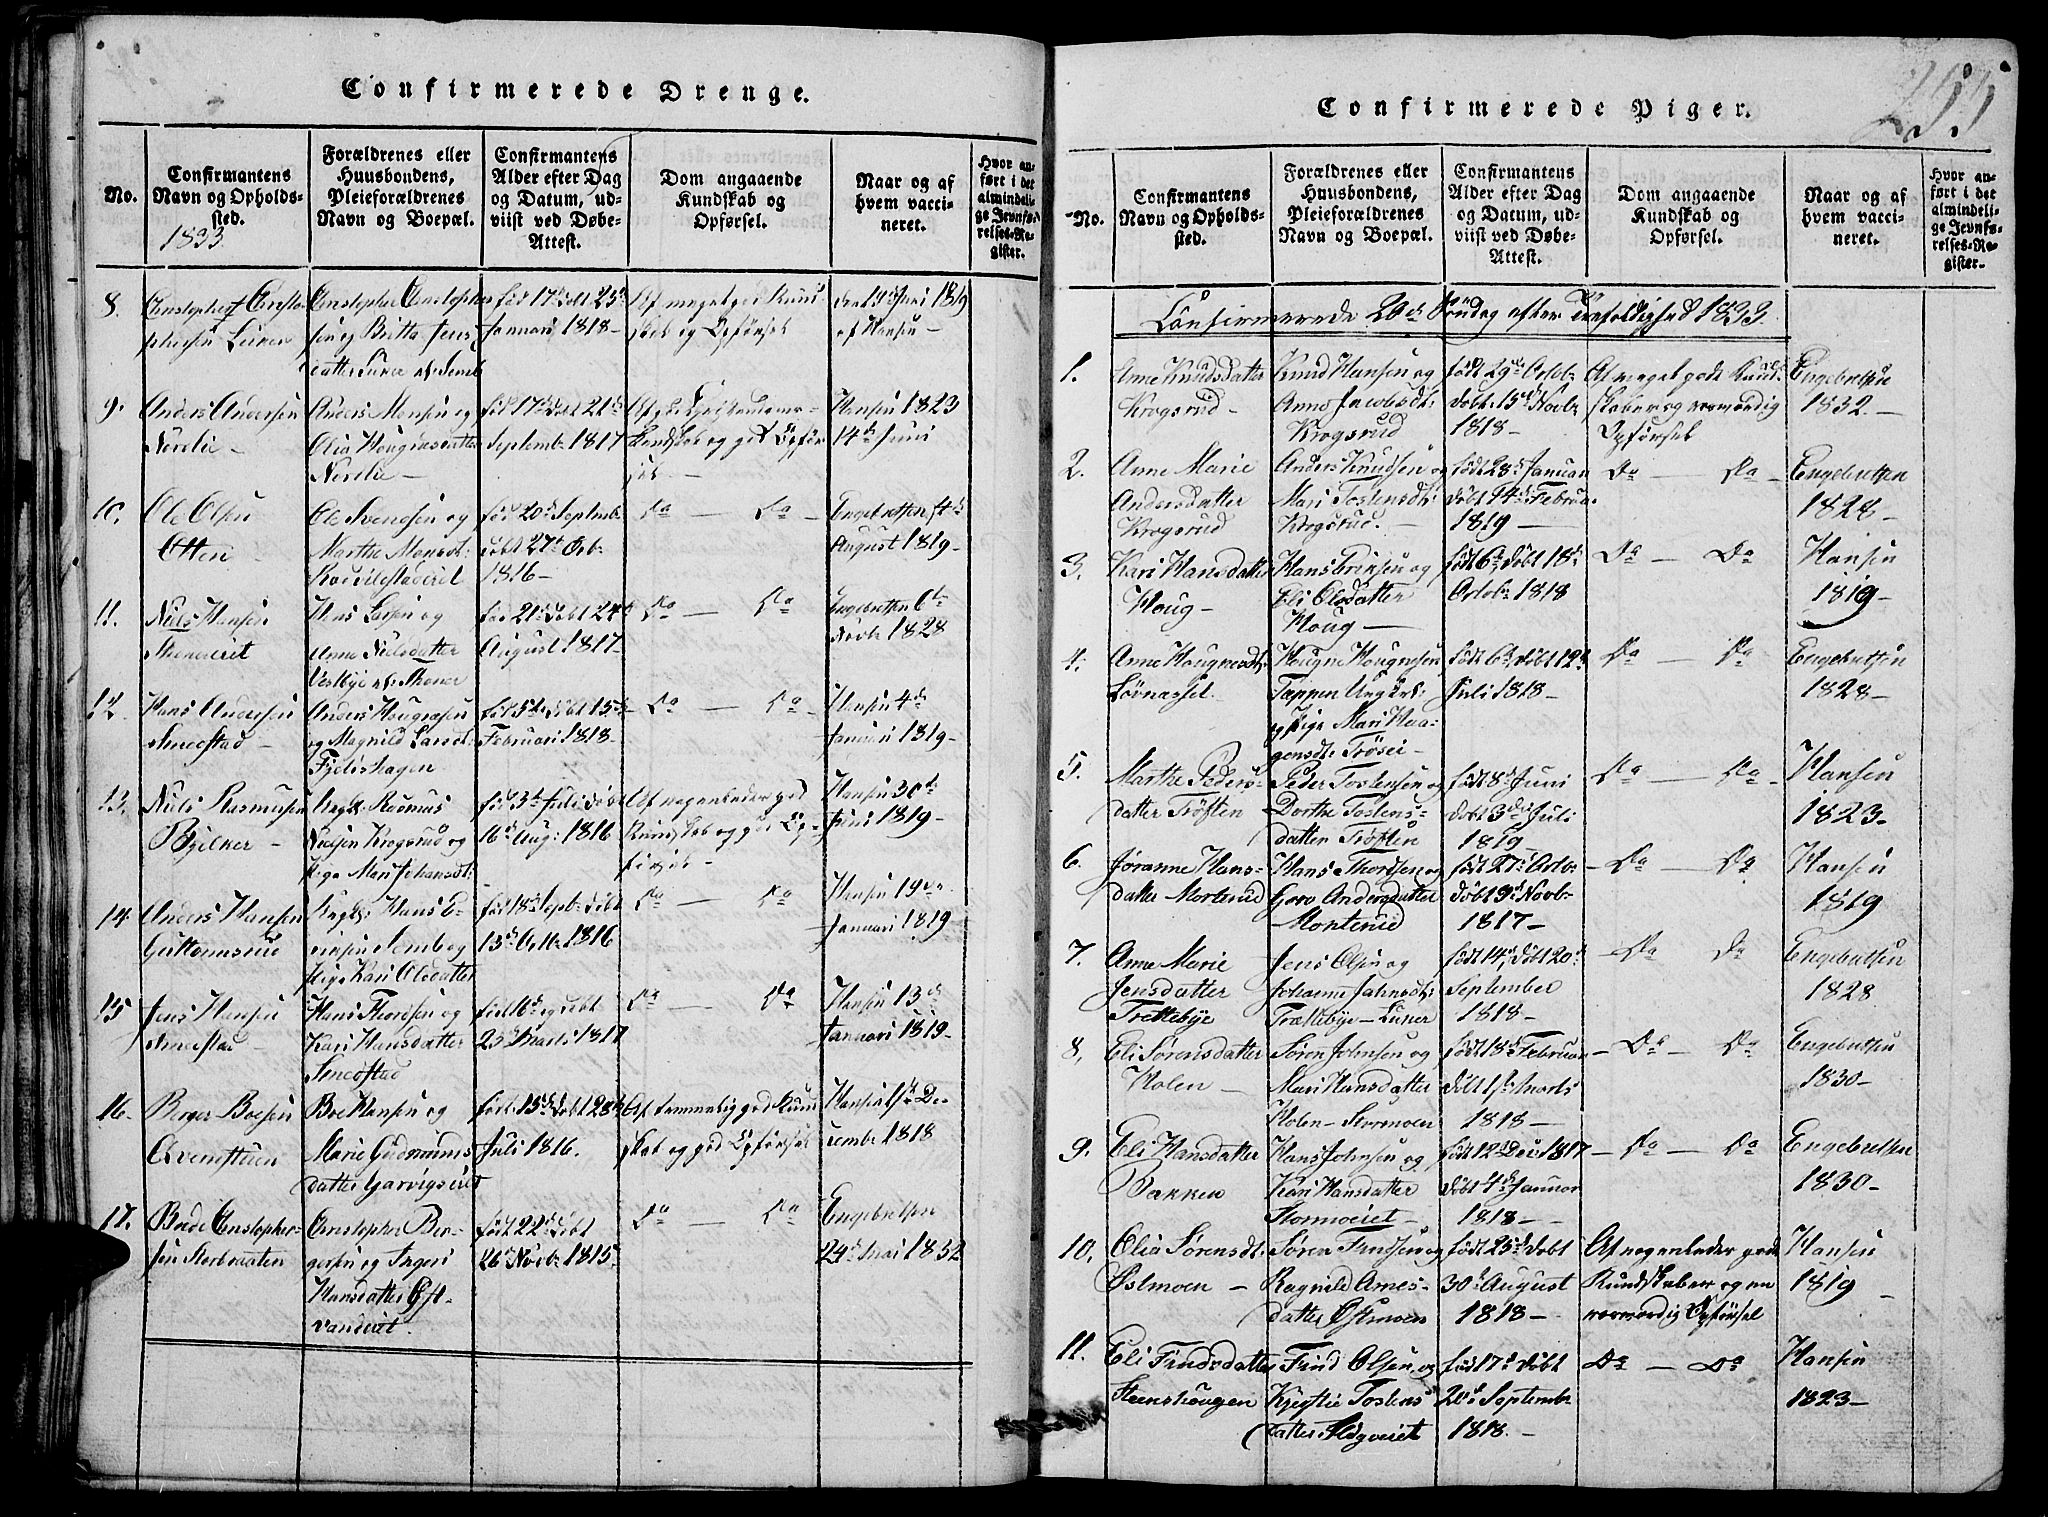 Confirmerede Drenge.
No.
Confirmantens
Navn og Opholds-
sted.
1833
Forældrenes eller
Huusbondens,
Pleieforældrenes
Navn og Boepæl.
Confirmantens
Alder efter Dag
og Datum, ud-
viist ved Døbe-
Attest.
Dom angaaende
Kundskab og
Opførsel.
Naar og af
hvem vacci-
neret.
Hvor an-
ført i det
almindeli-
ge Jevnfø-
relses-Re-
gister.
8.
født 17de døbt 25de
Januari 1818 -
Af meget god Kund-
skab og Opførsel
den 19de Juni 1819
af Hansen -
9.
Anders Andersen
Nordlie -
Anders Monsen og
Nordlie -
født 17de døbt 21de
Septembr 1817
Hansen 1823
14de Juni
10.
Ole Olsen
Ole Svendsen og
født 20de Septembr
døbt 27de Octb:
1816 -
Do — Do
Engebretsen
August 1819 -
11.
Niels Hansen
Hans Larsen og
Anne Nielsdatter
født 21de døbt 24de
August 1817
Do — Do
Engebretsen 6te
Novbr 1828
12.
Hans Andersen
Smedstad -
og Magnild Larsdt:
Februari 1818 -
Do — Do
Hansen 4de
Januari 1819 -
13.
Niels Rasmusen
Rasmus
Krogsrud og
Pige Mari Johansdt:
født 3de Juli døbt
16de Aug: 1816
Af nogenledes god
Kundskab og god Op-
førsel -
Hansen 30te
Juni 1819 -
14.
Anders Hansen
Hans E-
Pige Kari Olsdatter
født 18de Septbr døbt
13de Octbr 1816
Do — Do
Hansen 19de
Januari 1819
15
Jens Hansen
Smedstad -
Hans Thordsen og
Kari Hansdatter
Smedstad
født 16de og døbt
23de Marts 1817
Do — Do
Hansen 13de
Januari 1819 -
16.
Berger Boesen
Boe Hansen og
Marie Gudmunds-
datter
født 15de døbt 28de
Juli 1816.
Af temmelig god Kund-
skab og god Opførsel
Hansen De-
cembr 1818
17.
Christopher Ber-
gersen og Ingeri
Hansdatter
født 22de døbt
26de Novbr 1815
Do — Do
Engebretsen
24de Mai 1832
Confirmerede Piger.
255
No.
Confirmantens
Navn og Opholds-
sted.
Forældrenes eller
Huusbondens,
Pleieforældrenes
Navn og Boepæl.
Confirmantens
Alder efter Dag
og Datum, ud-
viist ved Døbe-
Attest.
Dom angaaende
Kundskab og
Opførsel.
Naar og af
hvem vacci-
neret.
Hvor an-
ført i det
almindeli-
ge Jevnfø-
relses-Re-
gister.
Confirmerede 20de Søndag efter Trefoldighed 1833.
1.
Anne Knudsdatter
Krogsrud -
Knud Hansen og
Anne Jacobsdt:
Krogsrud
født 29de Octob:
døbt 15de Novbr
1818 -
Af meget gode Kund-
skaber og værdig
Opførsel
Engebretsen
1832. -
2.
Anne Marie
Andersdatter
Krogsrud
Anders Knudsen og
Mari Tostensdt:
Krogsrud. -
født 28de Januari
døbt 14de Februar
1819 -
Do — Do -
Engebretsen
1828 -
3.
Kari Hansdatter
Houg -
Hans Erinsen og
Eli Olsdatter
Houg -
født 6te døbt 18de
Octob: 1818
Do — Do
Hansen
1819 -
4.
Hougne Hougnesen
Tappen Ungkrl:
og Pige Mari Haa-
gensdt: Trøsei -
født 6te døbt 12te
Juli 1818 -
Do — Do
Engebretsen
1828 -
5.
Marthe Peders-
datter Trøften
Peder Tostensen og
Dorthe Tostens-
datter Trøften
født 8de Juni
døbt 3die Juli
1819 -
Do — Do -
Hansen
1823 -
6.
Jøranne Hans-
datter Morterud
Hans Thordsen og
Goro Andersdatter
Morterud
født 27de Octo-
døbt 9de Novb-
1817 -
Do — Do
Hansen
1819
7.
Anne Marie
Jensdatter
Trettebye
Jens Olsen og
Johanne Jahnsdt:
Trættebye - Luner
født 14de døbt 20de
September
1818 -
Do Do
Engebretsen
1828
8,
Eli Sørensdatter
Holen -
Søren Johnsen og
Mari Hansdatter
Holen - Stormoen
født 18de Februar
døbt 1ste Marts
1818 -
Do — Do
Engebretsen
1830 -
9.
Eli Hansdatter
Bakken
Hans Johnsen og
Kari Hansdatter
Stormoeiet -
født 12te Dec: 1817
døbt 4de Januar
1818 -
Do — Do
Engebretsen
1830 -
10,
Olia Sørensdt:
Østmoen -
Søren Findsen og
Ragnild Arnes-
datter Østmoen
født 25de døbt
30te August
1818 -
Af nogenledes gode
Kundskaber og en
værdig Opførsel
Hansen
1819 -
11.
Eli Findsdatter
Steenshougen
Find Olsen og
Kjerstie Tostens-
datter
født 17de døbt
20de September
1818. -
Do — Do
Hansen
1823 -